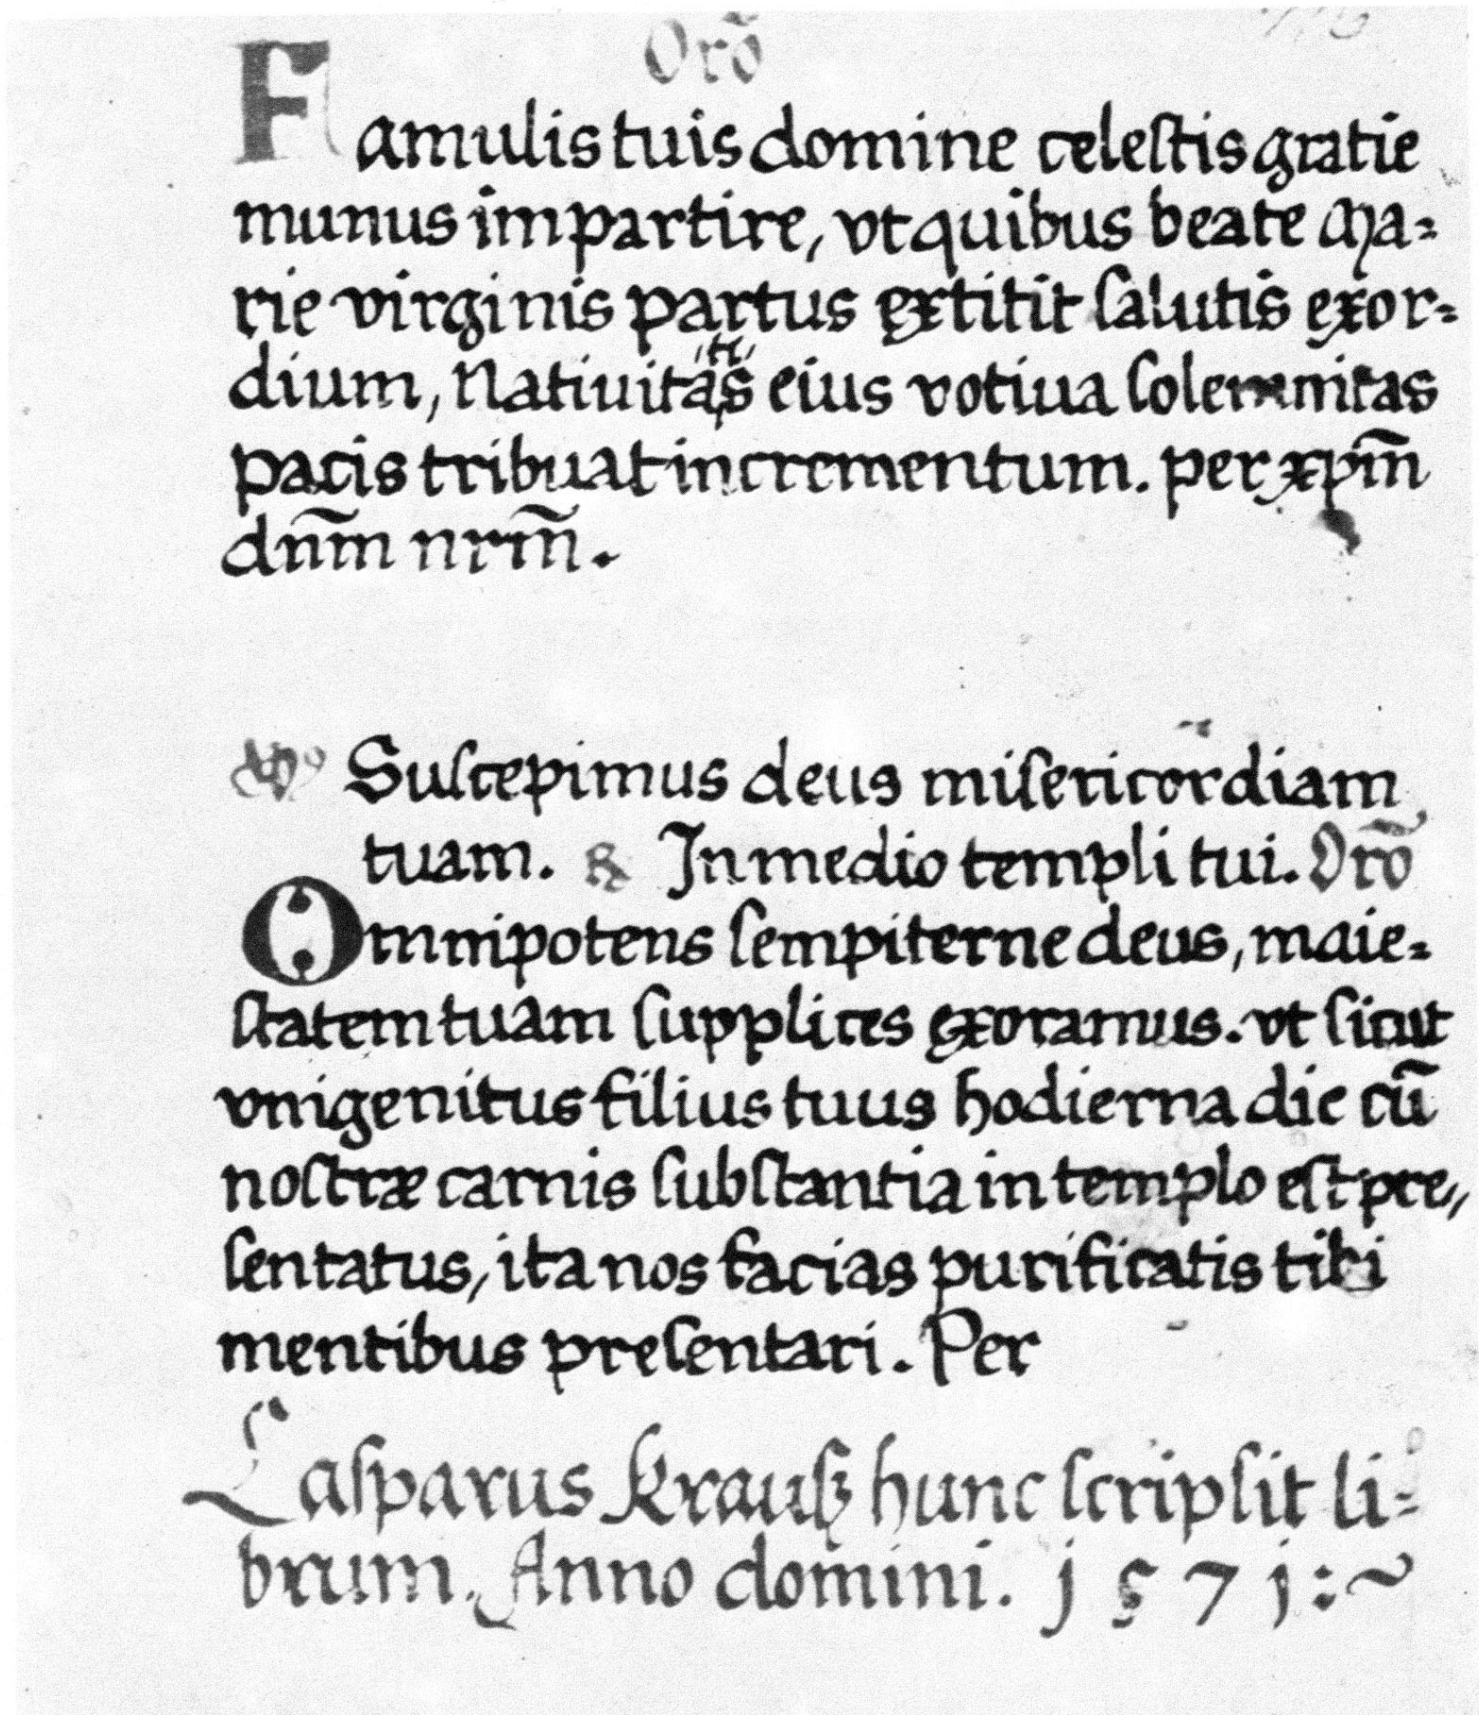 Orõ
Famulis tuis domine celestis gratie
munus impartire, vt quibus beate Ma=
rie virginis partus extitit salutis exor=
dium, Natiuitatis eius votiua solemnitas
pacis tribuat incrementum. per xpm̃
dnm̃ nrm̃.
Suscepimus deus misericordiam
tuam. ℟ In medio templi tui. Orõ
Omnipotens sempiterne deus, maie=
statem tuam supplices exoramus. vt sicut
vnigenitus filius tuus hodierna die cũ
nostræ carnis substantia in templo est pre,,
sentatus, ita nos facias purificatis tibi
mentibus presentari. Per
Casparus Krauß hunc scripsit li=
brum. Anno domini. 1571:~